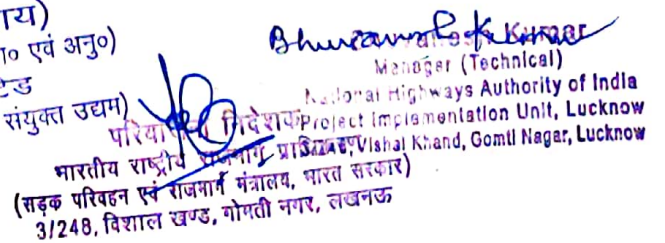 ाय)
न० एवं अनु०)
टेड
संयुक्त उद्यम)
Kumar
Manager (Technical)
National Highways Authority of India
Project Implementation Unit, Lucknow
Vishal Khand, Gomti Nagar, Lucknow
परियोजना निदेशक
भारतीय राष्ट्रीय राजमार्ग प्राधिकरण
(सड़क परिवहन एवं राजमार्ग मंत्रालय, भारत सरकार)
3/248, विशाल खण्ड, गोमती नगर, लखनऊ